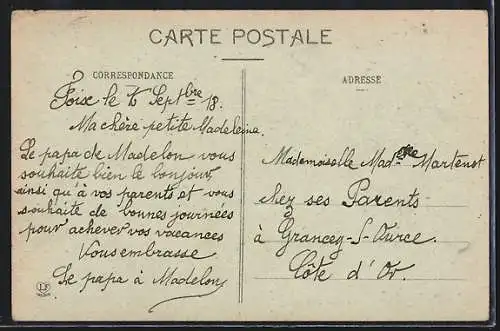 CARTE POSTALE
CORRESPONDANCE
ADRESSE
Foix le Septbre 18.
Ma chère petite Madeleine
Le papa de Madelon vous
souhaite bien le bonjour
ainsi qu'à vos parents et vous
souhaite de bonnes journées
pour achever vos vacances
Vous embrasse
Le papa à Madelon
Mademoiselle Mad Martenot
chez ses Parents
à Grancey-S-Ource.
Côte d'Or.